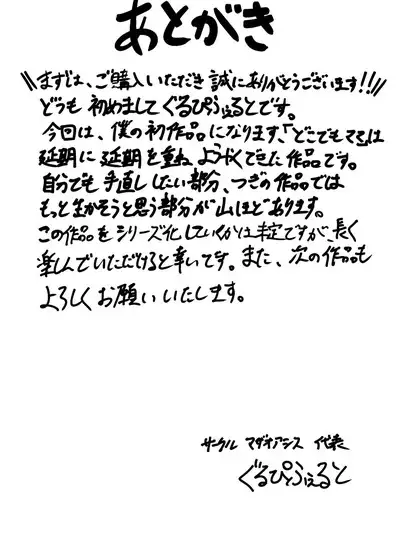 あとがき
まずは、ご購入いただき誠にありがとうございます!!
どうも初めましてぐるぴふぇるとです。
今回は、僕の初作品になります、「どこでもママ」は
延期に延期を重ね、ようやくできた作品です。
自分でも手直ししたい部分、つぎの作品では
もっと生かそうと思う部分が山ほどあります。
この作品をシリーズ化していくかは未定ですが、長く
楽しんでいただけると幸いです。また、次の作品も
よろしくお願いいたします。
サークル マザオアシス 代表
ぐるぴふぇると